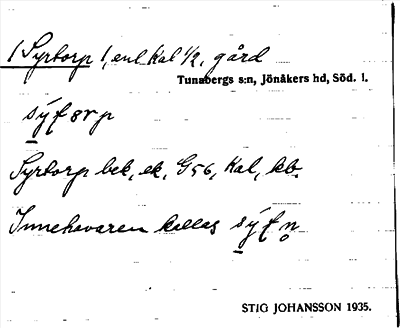 1 Syrtorp 1, enl. Kal ½, gård
Tunabergs s:n, Jönåkers hd, Söd. l.
Syrtorp bek, ek, G56, Kal, kb.
Innehavaren kallas
STIG JOHANSSON 1935.